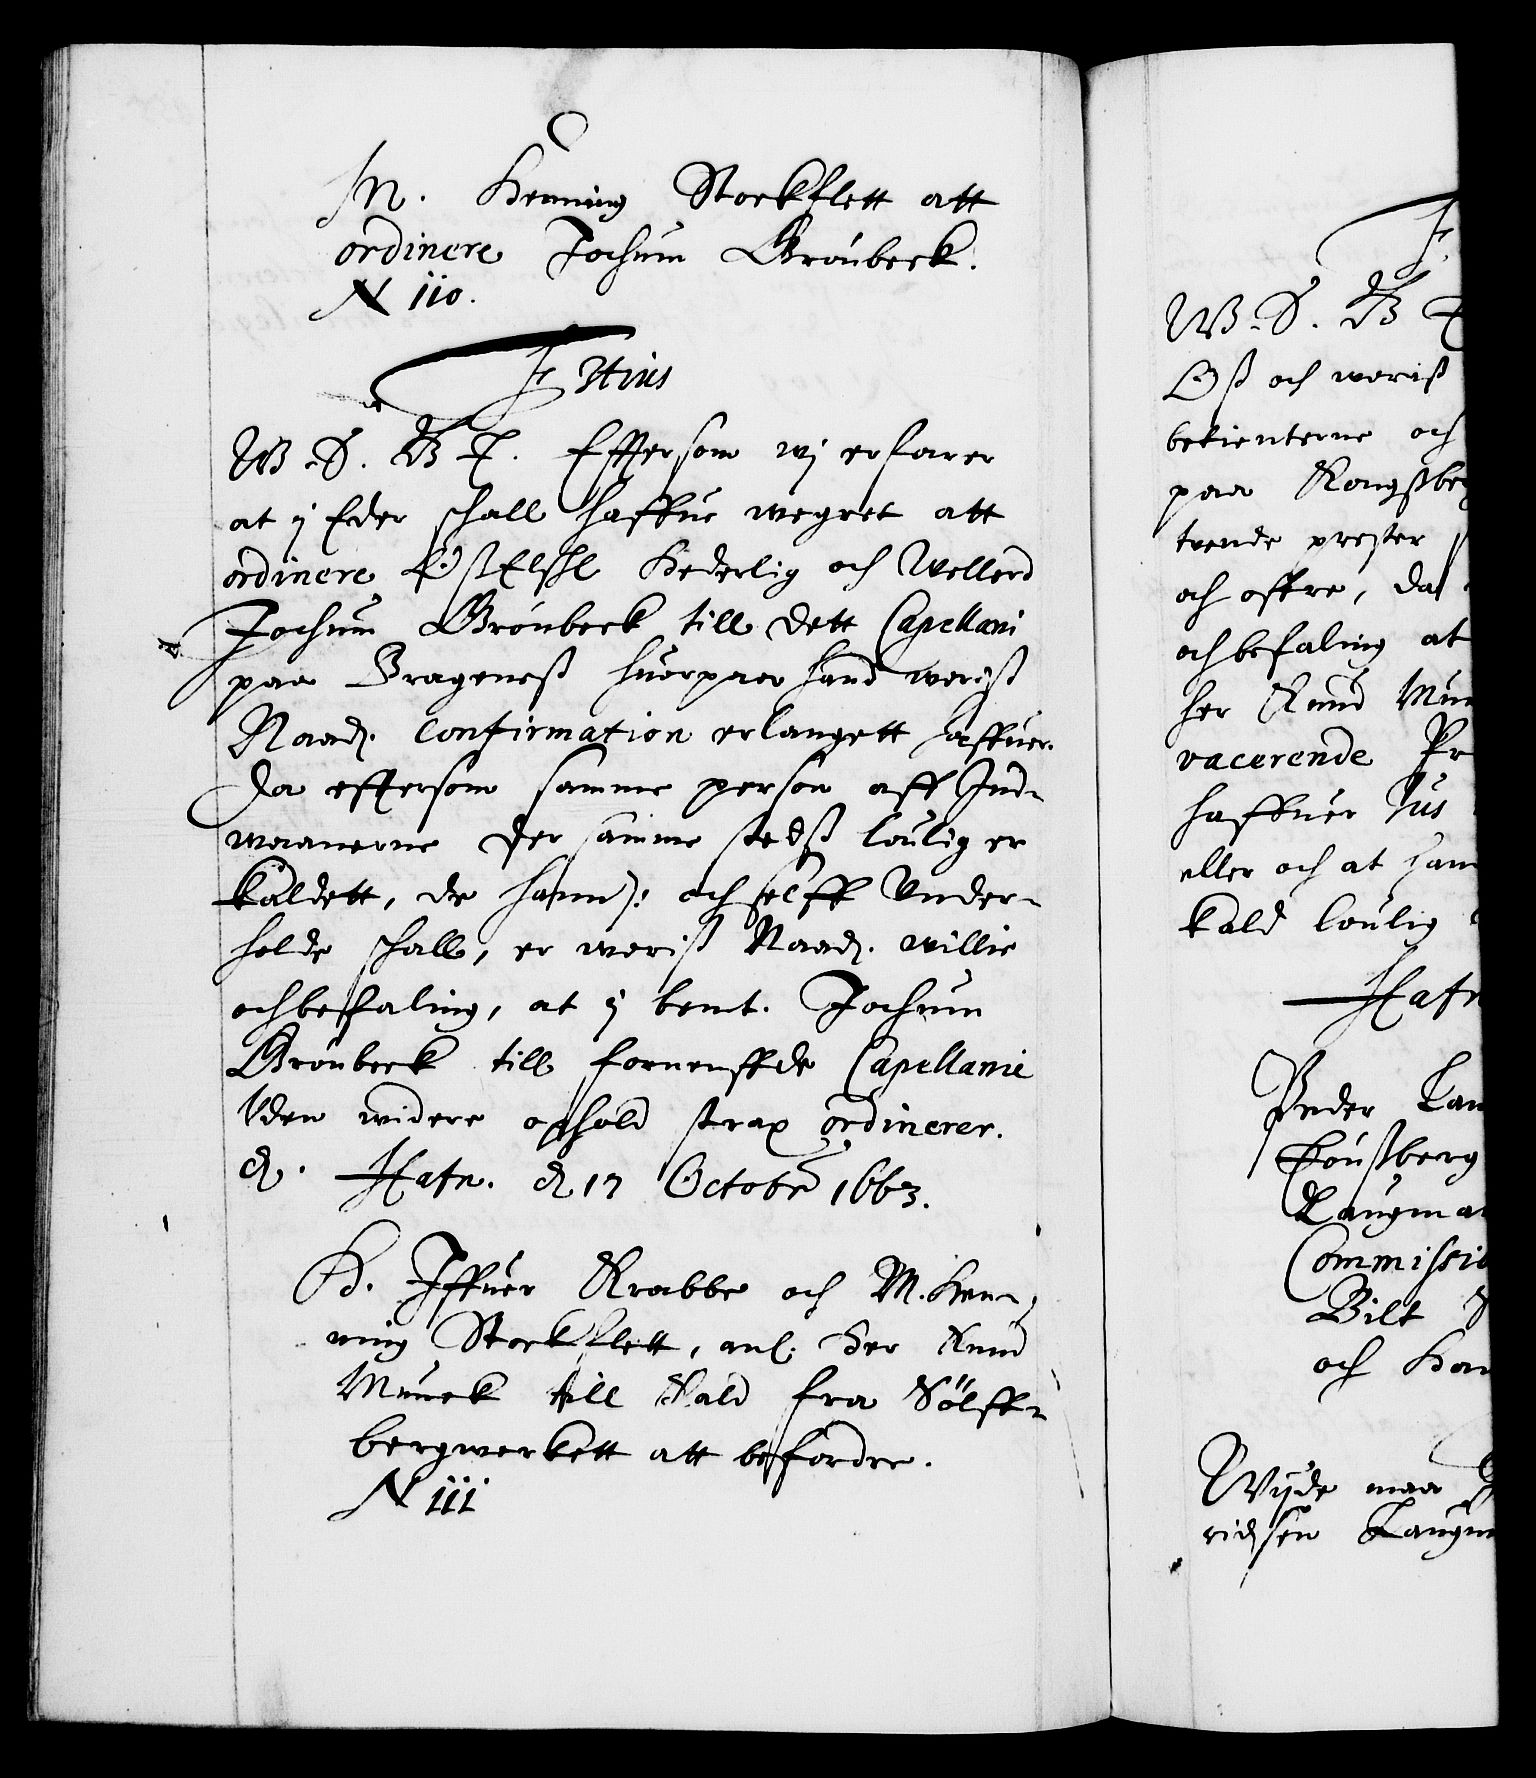 M. Henning Stockflett att
ordinere Jochum Grönbeck.
N 110.
F 3tius
W. S. G T. Efftersom wj erfarer
at j Eder schall haffue wegret att
ordinere Oß Elschl Hederlig och Wellerd
Jochum Grönbeck till dett Capellani
paa Brageneß huorpaa hand woriß
Naad. Confirmation erlangett haffuer.
da efftersom samme person aff Ind-
woanerne der samme stedß loulig er
kaldett, de hannd: och selff Vnder-
holde schall, er woriß Naad. willie
och befaling, at j bemt. Jochum
Grönbeck till fornenffde Capellanie
Vden widere ophold strax ordinerer.
d. Hafn. d 17 Octobr 1663.
H. Iffuer Krabbe och M. Hen-
ning Stockflett, anl. Her Knud
Munck till Kald fra Sölff-
bergwerkett att befordre.
N 111
F
W. S. G T
Oß och woriß
betienterne och
paa Kongßbe
tvende prester
och offre, da
och befaling at
her Knud Mun
vacerende Pr
haffuer Jus
eller och at han
kald loulig
Hafn
Peder Lau
Tönßberg
Laugma
Commissio
Bilt
och Han
Wijde maa
richsen Laugm